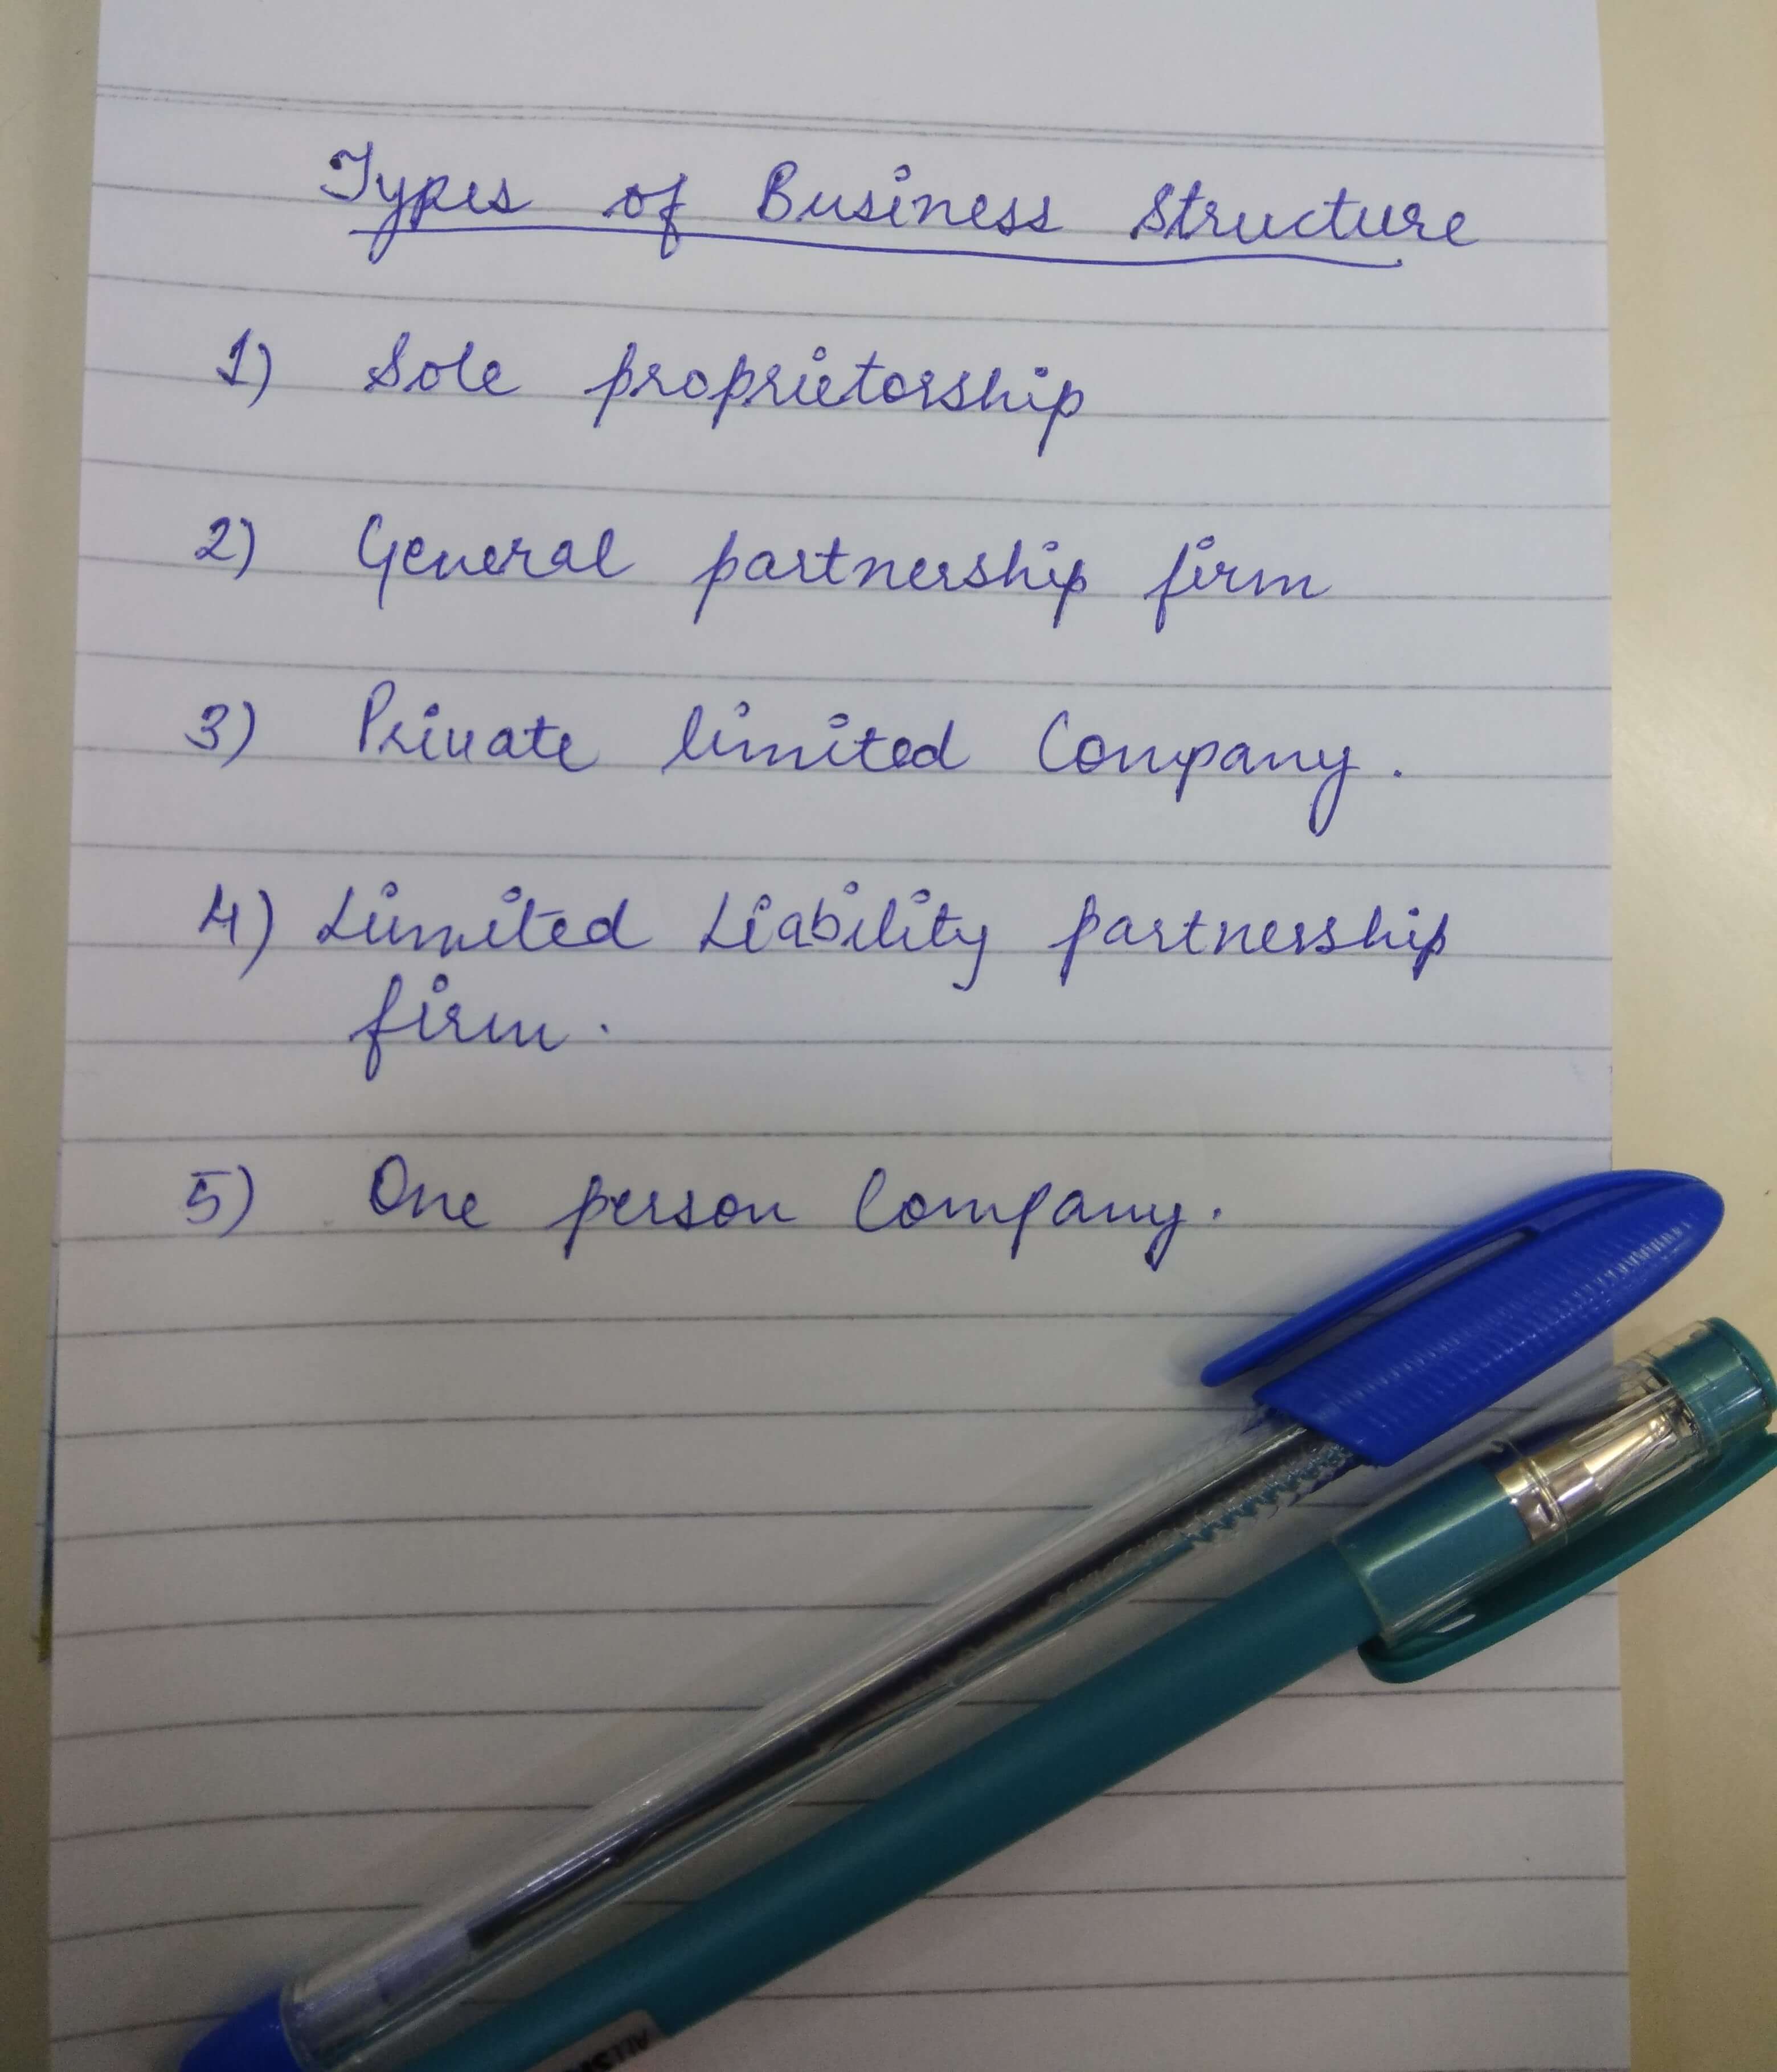 Types of Business Structure
1) Sole proprietorship
2) General partnership firm
3) Private limited Company.
4) Limited Liability partnership
firm.
5) One person Company.